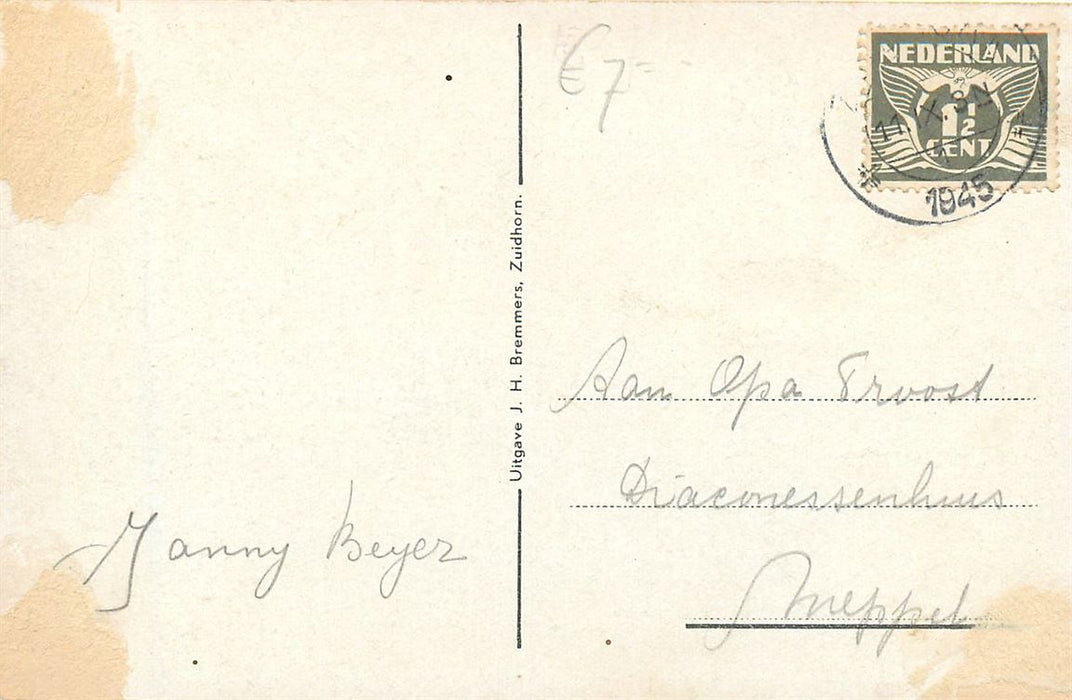 € 7=
NEDERLAND
1 1/2
CENT
11.IX.
1945
Uitgave J. H. Bremmers, Zuidhorn.
Aan Opa Troost
Diaconessenhuis
Meppel
Janny Beyer